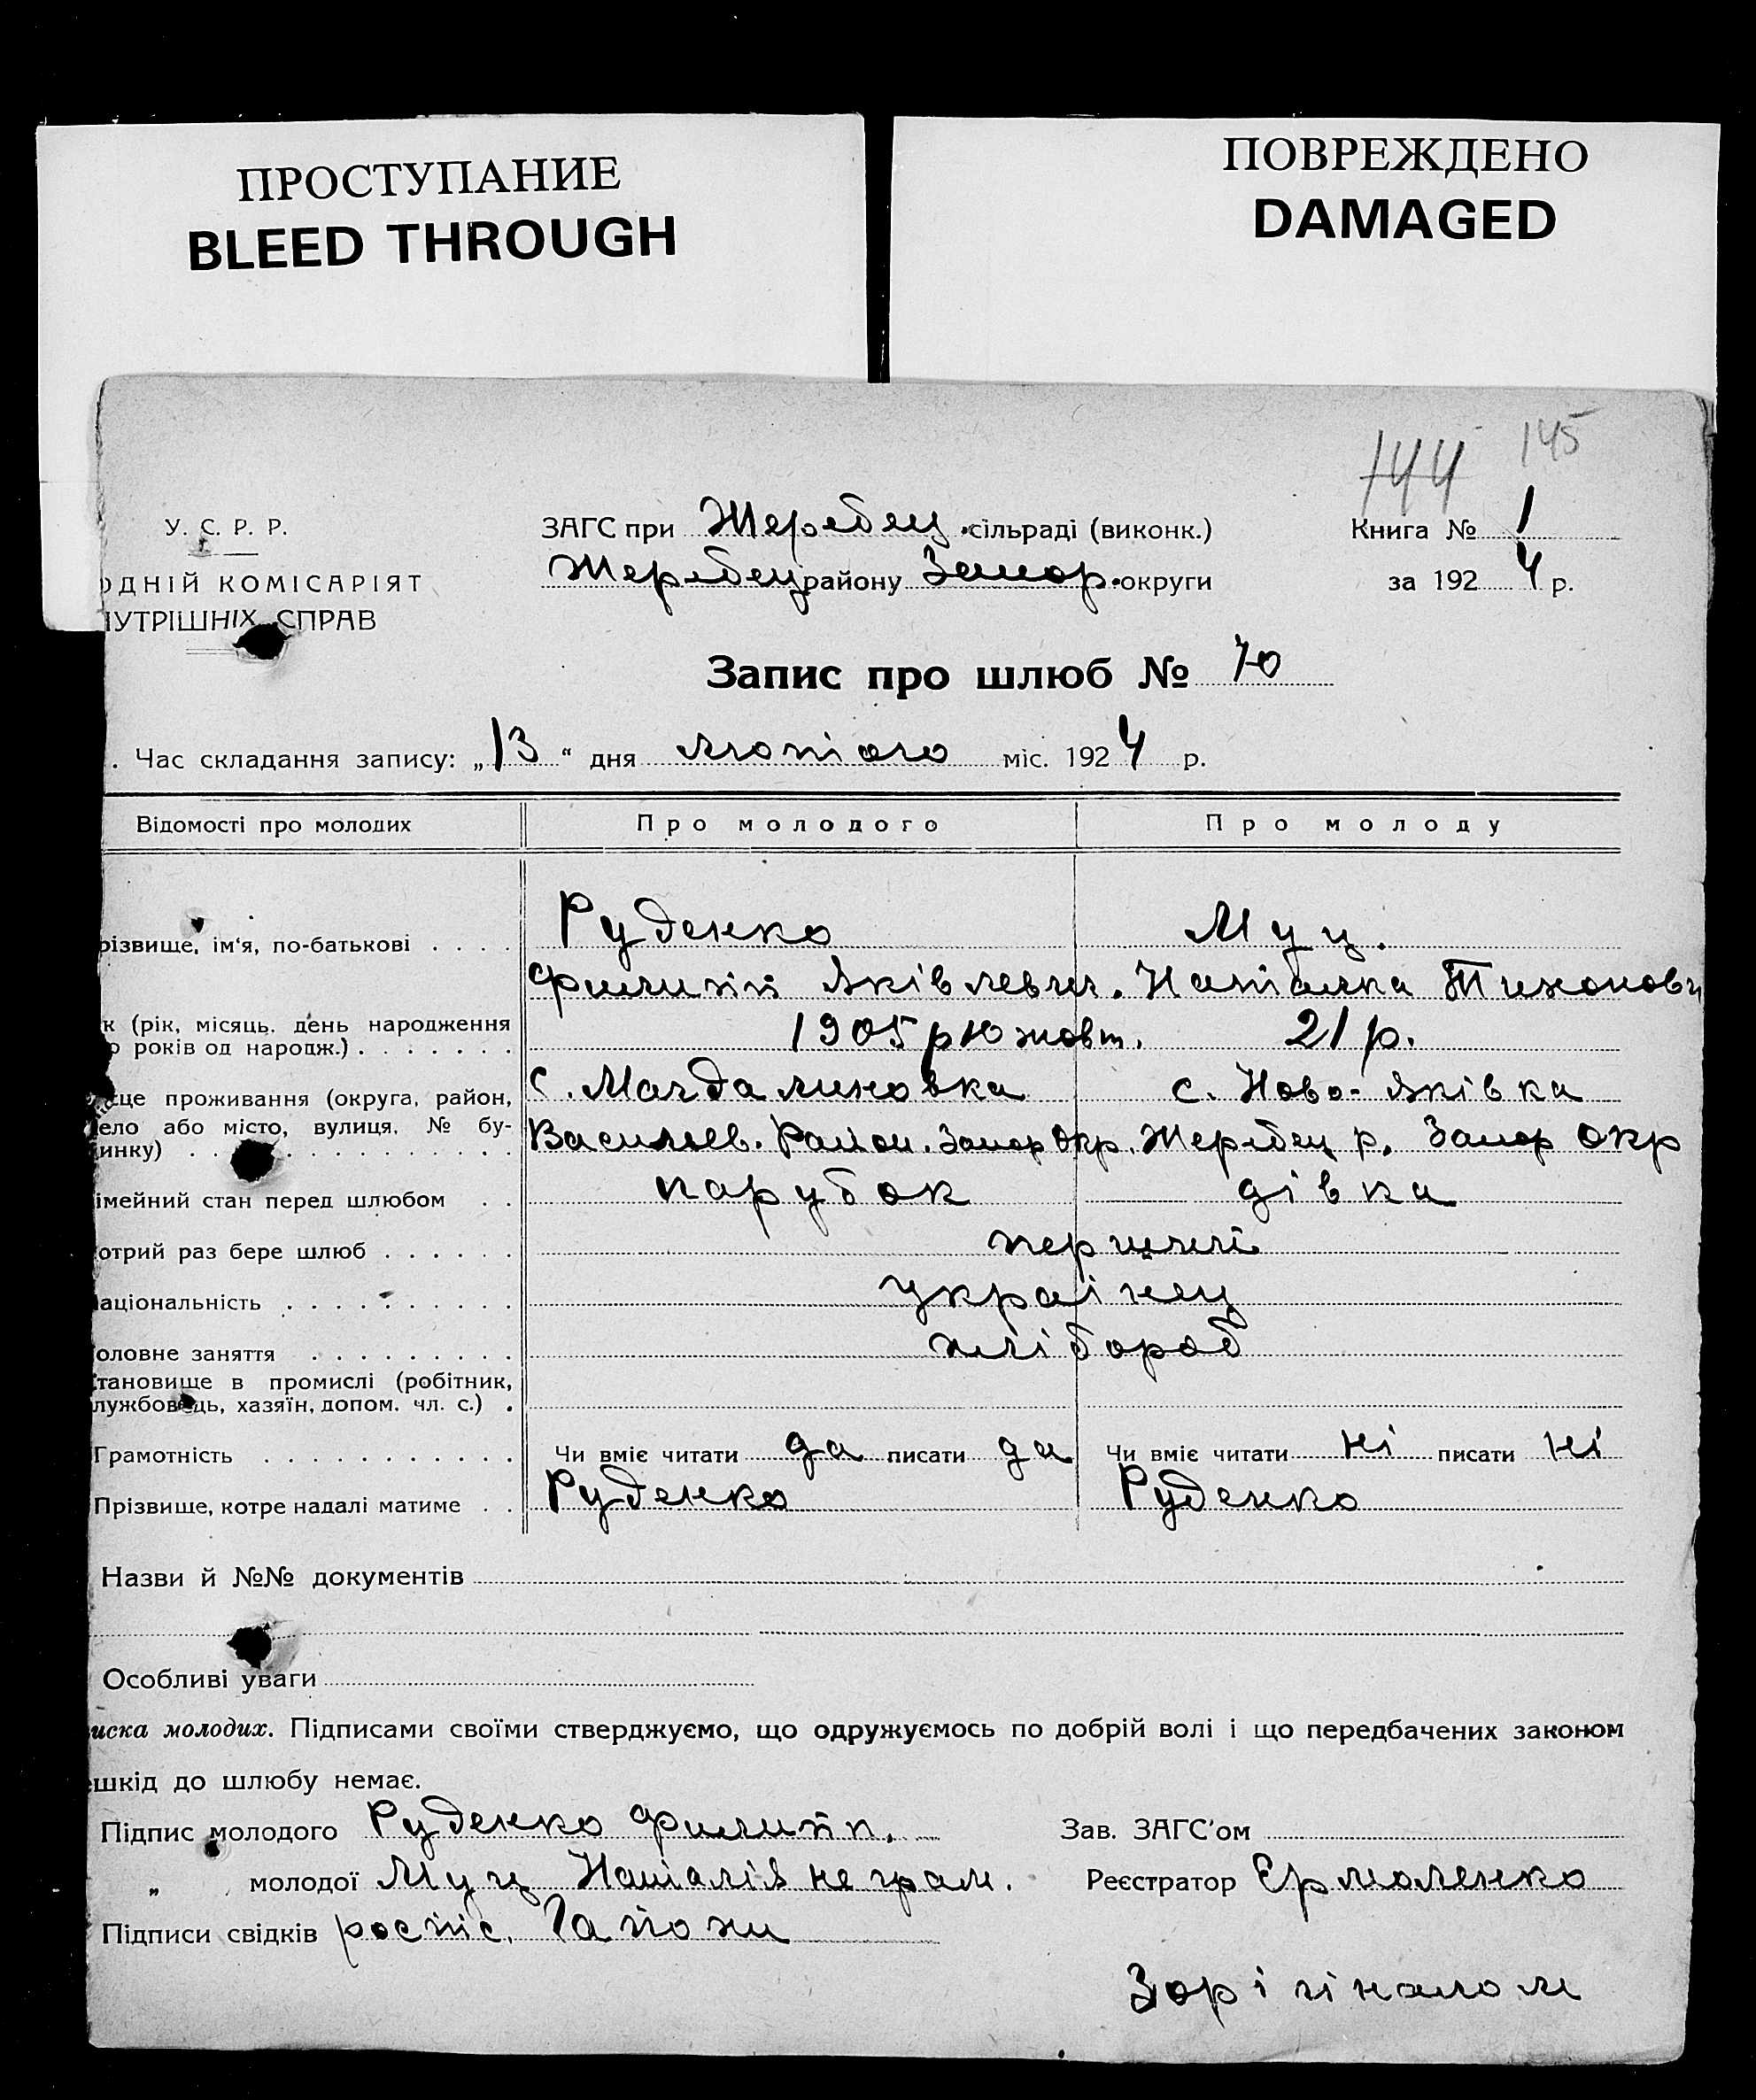 ПРОСТУПАНИЕ
BLEED THROUGH
ПОВРЕЖДЕНО
DAMAGED
144 145
У. С. Р. Р.
ЗАГС при Жеребец. сільраді (виконк.)
Книга № 1
ОДНІЙ КОМІСАРІЯТ
Жеребец району Запор. округи
за 1924 р.
НУТРІШНІХ СПРАВ
Запис про шлюб № 70
. Час складання запису: „13“ дня лютого міс. 1924 р.
Відомості про молодих Про молодого Про молоду
різвище, ім‘я, по-батькові . . . . Руденко Муц.
Филипп Яківлевич. Наталка Тихонови
к (рік, місяць, день народження
о років од народж.) . . . . . . . 1905 р 10 жовт. 21 р.
сце проживання (округа, район, с. Магдалиновка с. Ново-Яківка
ело або місто, вулиця, № бу-
инку) . . . . . . . . . . . . Василев. Район. Запор Окр. Жеребец р. Запор Окр
імейний стан перед шлюбом . . парубок дівка
отрий раз бере шлюб . . . . . . перший
аціональність . . . . . . . . . . українец
оловне заняття . . . . . . . . . хлібороб
тановище в промислі (робітник,
лужбовець, хазяїн, допом. чл. с.) .
Грамотність . . . . . . . . . . . Чи вміє читати да писати да Чи вміє читати ні писати ні
Прізвище, котре надалі матиме . . Руденко Руденко
Назви й №№ документів
Особливі уваги
иска молодих. Підписами своїми стверджуємо, що одружуємось по добрій волі і що передбачених законом
ешкід до шлюбу немає.
Підпис молодого Руденко Филипп. Зав. ЗАГС‘ом
„ молодої Муц Наталія не грам. Реєстратор Ермоленко
Підписи свідків роспис.
З орігіналом